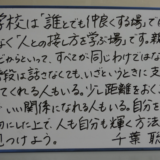 学校は「誰とでも仲良くする場」で
なく「人との接し方を学ぶ場」です。親
だからといって、すべてが同じわけではな
学校は話さなくても、いざというときに支
てくれる人もいる。少し距離をおく
いい関係になれる人もいる。自分を
切にした上で、人も自分も輝く方法
見つけよう。
千葉